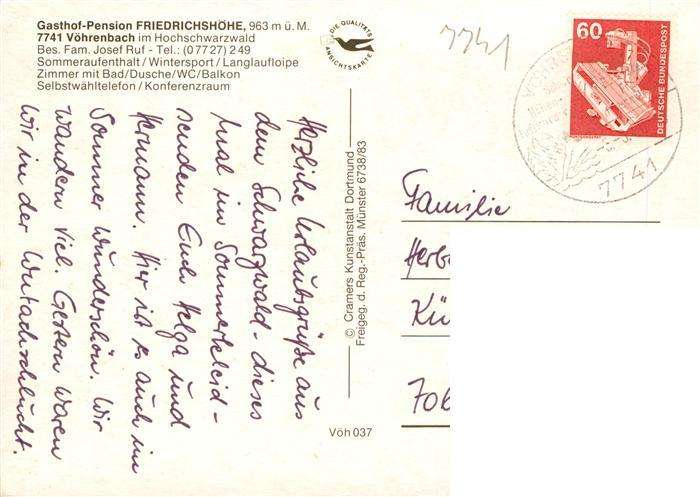 Gasthof-Pension FRIEDRICHSHÖHE, 963 m ü. M.
7741 Vöhrenbach im Hochschwarzwald
Bes. Fam. Josef Ruf - Tel.: (07727) 249
Sommeraufenthalt / Wintersport / Langlaufloipe
Zimmer mit Bad/Dusche/WC/Balkon
Selbstwähltelefon / Konferenzraum
DIE QUALITÄTS
ANSICHTSKARTE
7741
60
DEUTSCHE BUNDESPOST
7741
Herzliche Urlaubsgrüße aus
dem Schwarzwald - dieses
Mal im Sommerkleid -
senden Euch Helga und
Hermann. Hier ist es auch im
Sommer wunderschön. Wir
wandern viel. Gestern waren
wir in der Wutachschlucht.
© Cramers Kunstanstalt Dortmund
Freigeg. d. Reg.-Präs. Münster 6738/83
Vöh 037
Familie
Herb
Kü
706